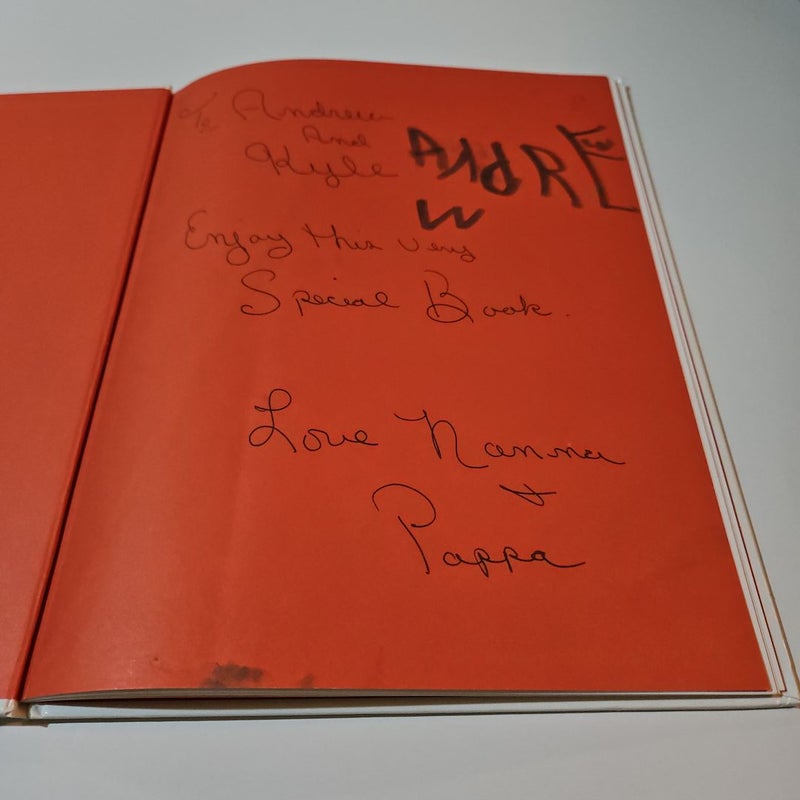 Andrew
And
Kyle
ANdRE
W
Enjoy this very
Special Book.
Love Nanna
+
Pappa